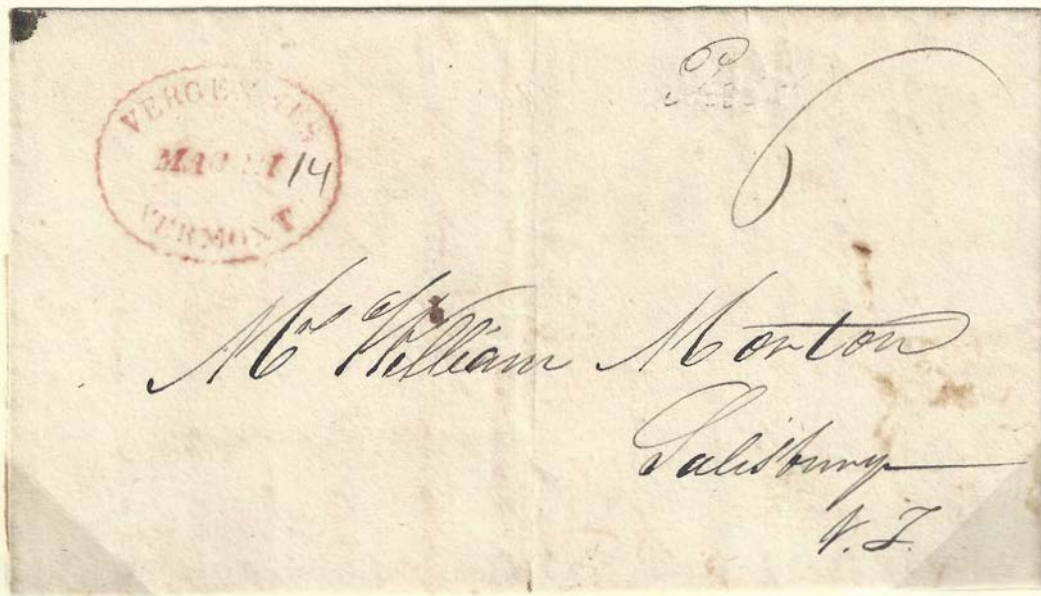 VERGENNES
14
VERMONT
6
Mr William Morton
Salisbury